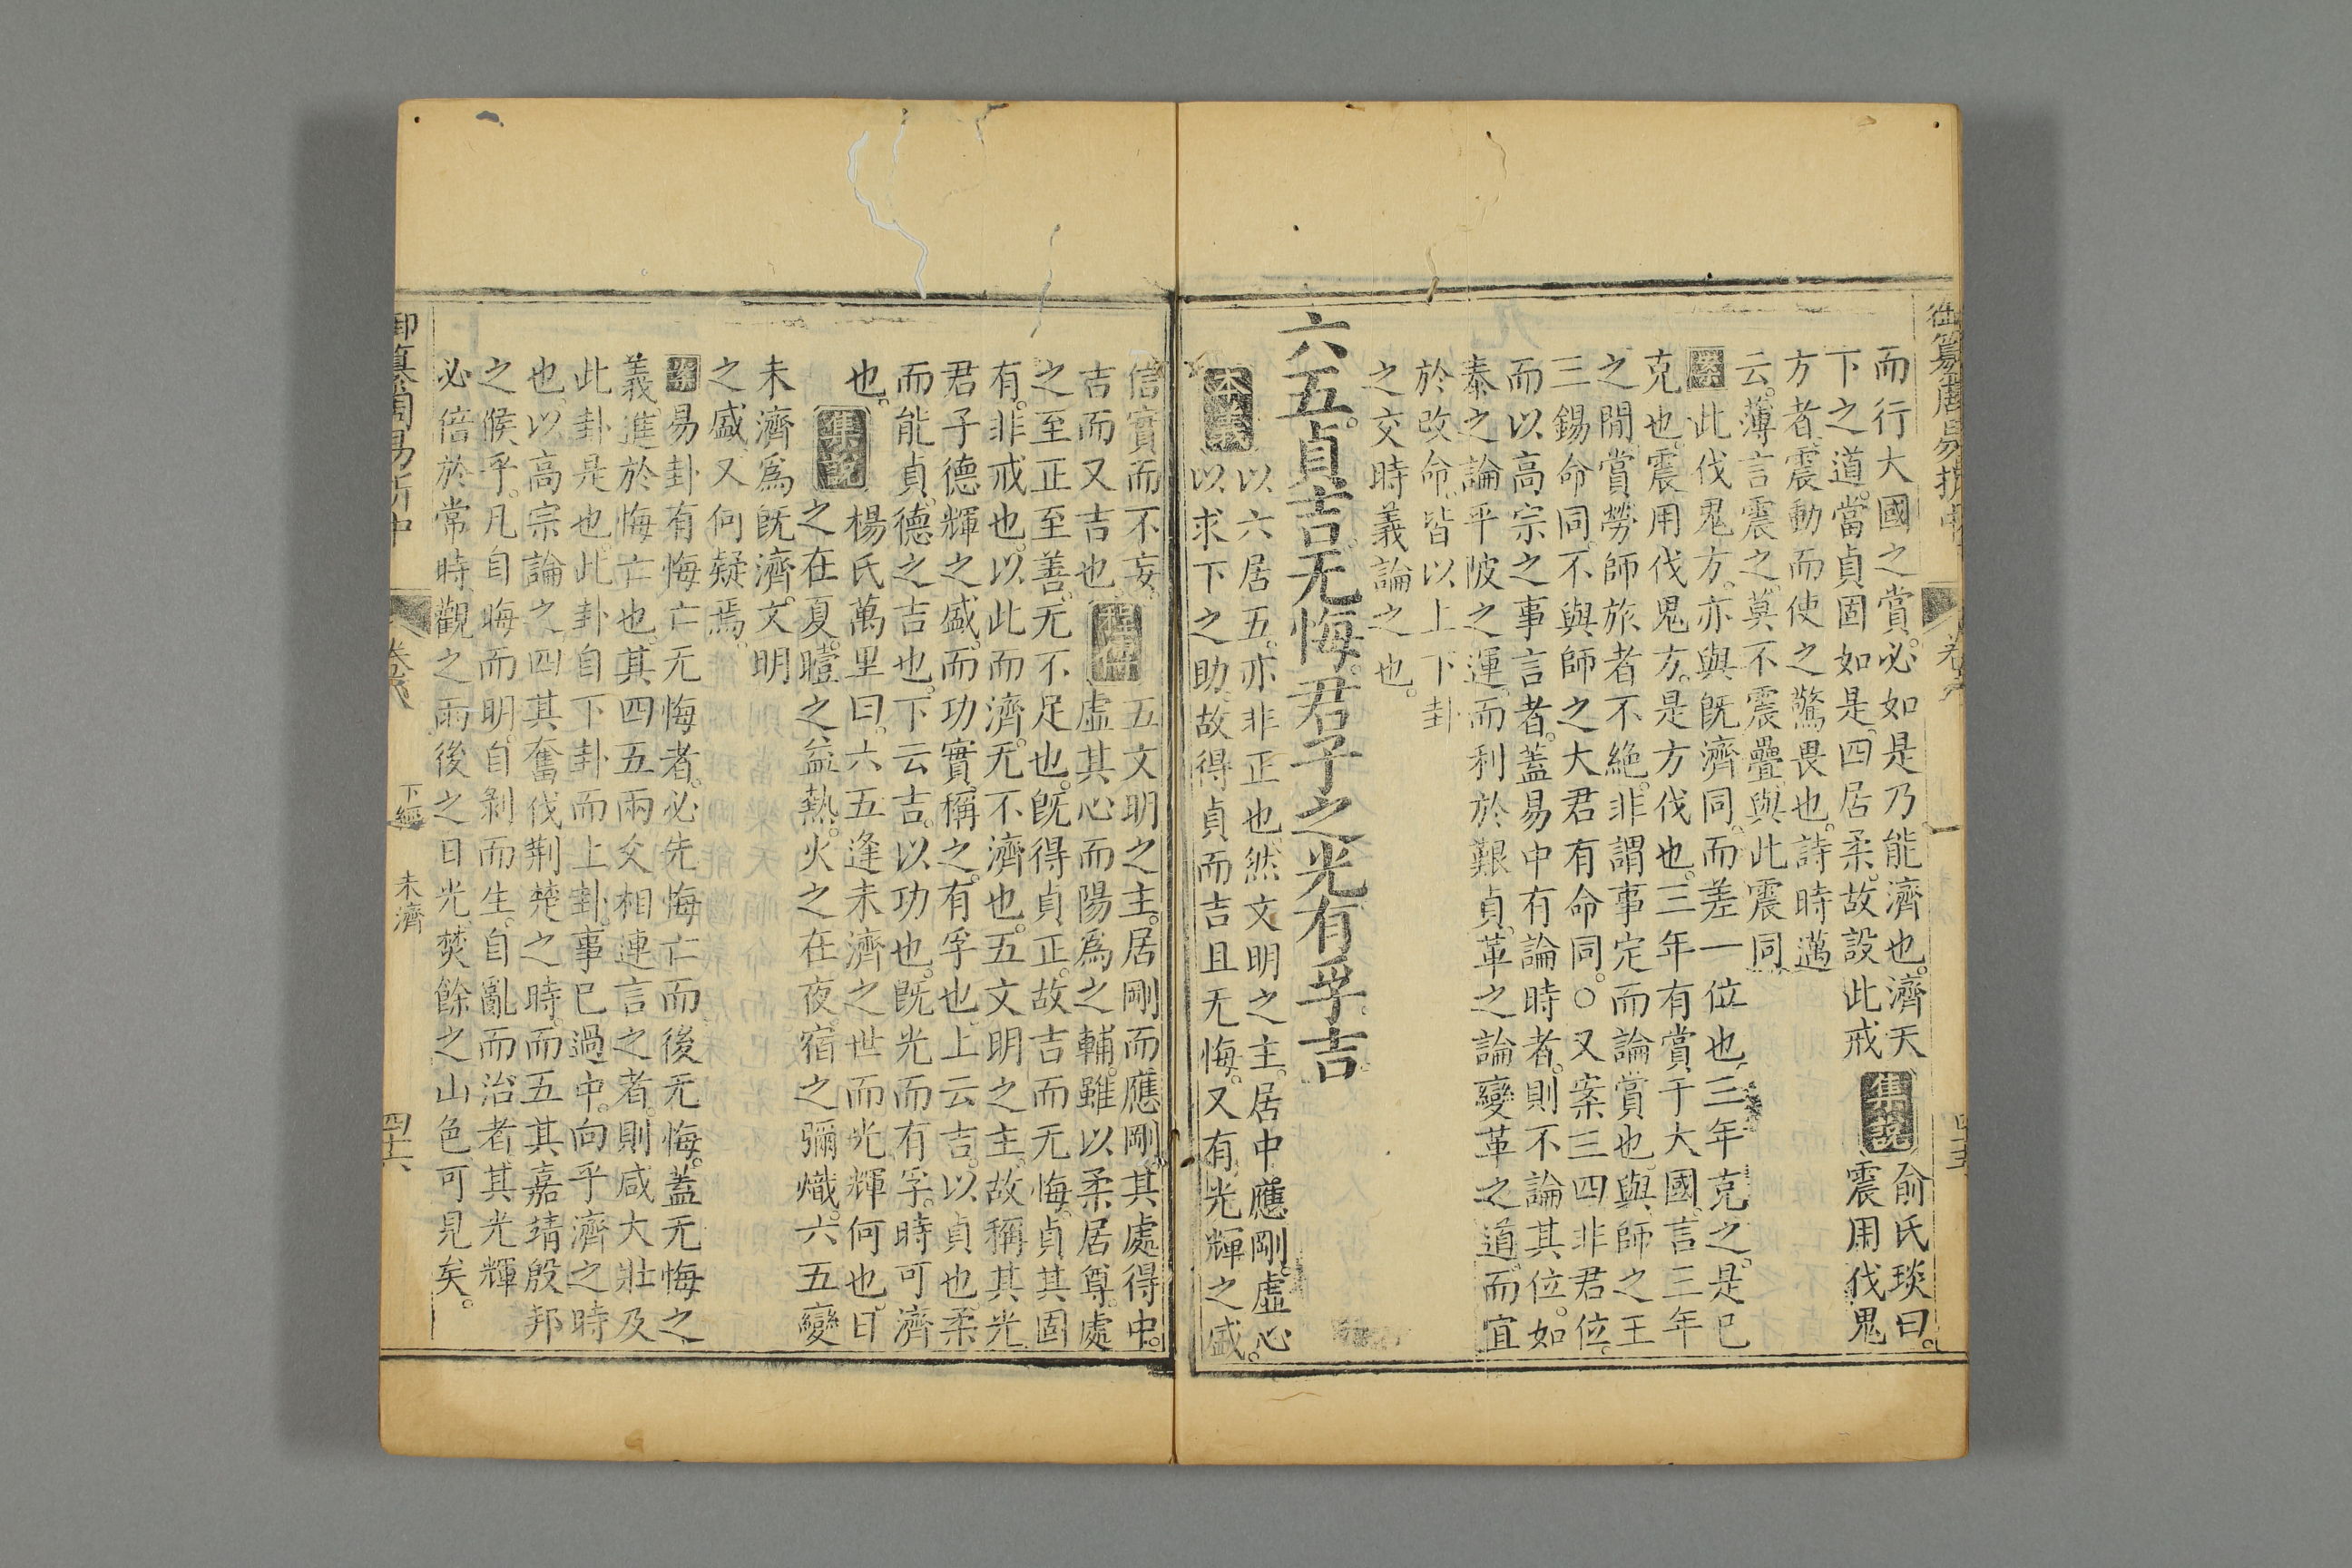 御纂周易折中
卷八
四十五
而行大國之賞。必如是乃能濟也。濟天
下之道。當貞固如是。四居柔。故設此戒
集說
俞氏琰曰。
震用伐鬼
方者。震動而使之驚畏也。詩時邁
云。薄言震之。莫不震疊。與此震同
案此伐鬼方。亦與旣濟同。而差一位也。三年克之。是已
克也。震用伐鬼方。是方伐也。三年有賞于大國。言三年
之閒。賞勞師旅者不絕。非謂事定而論賞也。與師之王
三錫命同。不與師之大君有命同。○又案三四非君位。
而以高宗之事言者。蓋易中有論時者。則不論其位。如
泰之論平陂之運。而利於艱貞。革之論變革之道。而宜
於改命。皆以上下卦
之交時義論之也。
六五。貞吉。无悔。君子之光。有孚。吉
本義
以六居五。亦非正也。然文明之主。居中應剛。虛心
以求下之助。故得貞而吉且无悔。又有光輝之盛。
信實而不妄。
吉而又吉也。
程傳
五文明之主。居剛而應剛。其處得中。
虛其心而陽爲之輔。雖以柔居尊。處
之至正至善。无不足也。旣得貞正。故吉而无悔。貞其固
有。非戒也。以此而濟。无不濟也。五文明之主。故稱其光
君子德輝之盛。而功實稱之。有孚也。上云吉。以貞也。柔
而能貞。德之吉也。下云吉。以功也。旣光而有孚。時可濟
也。
集說
楊氏萬里曰。六五逢未濟之世而光輝何也。日
之在夏。曀之益熱。火之在夜。宿之彌熾。六五變
未濟爲旣濟。文明
之盛。又何疑焉。
案易卦有悔亡无悔者。必先悔亡而後无悔。蓋无悔之
義。進於悔亡也。其四五兩爻相連言之者。則咸大壯及
此卦是也。此卦自下卦而上卦。事已過中。向乎濟之時
也。以高宗論之。四其奮伐荆楚之時。而五其嘉靖殷邦
之候乎。凡自晦而明。自剝而生。自亂而治者。其光輝
必倍於常時。觀之雨後之日光。焚餘之山色。可見矣。
御纂周易折中
卷八
下經
未濟
四十六